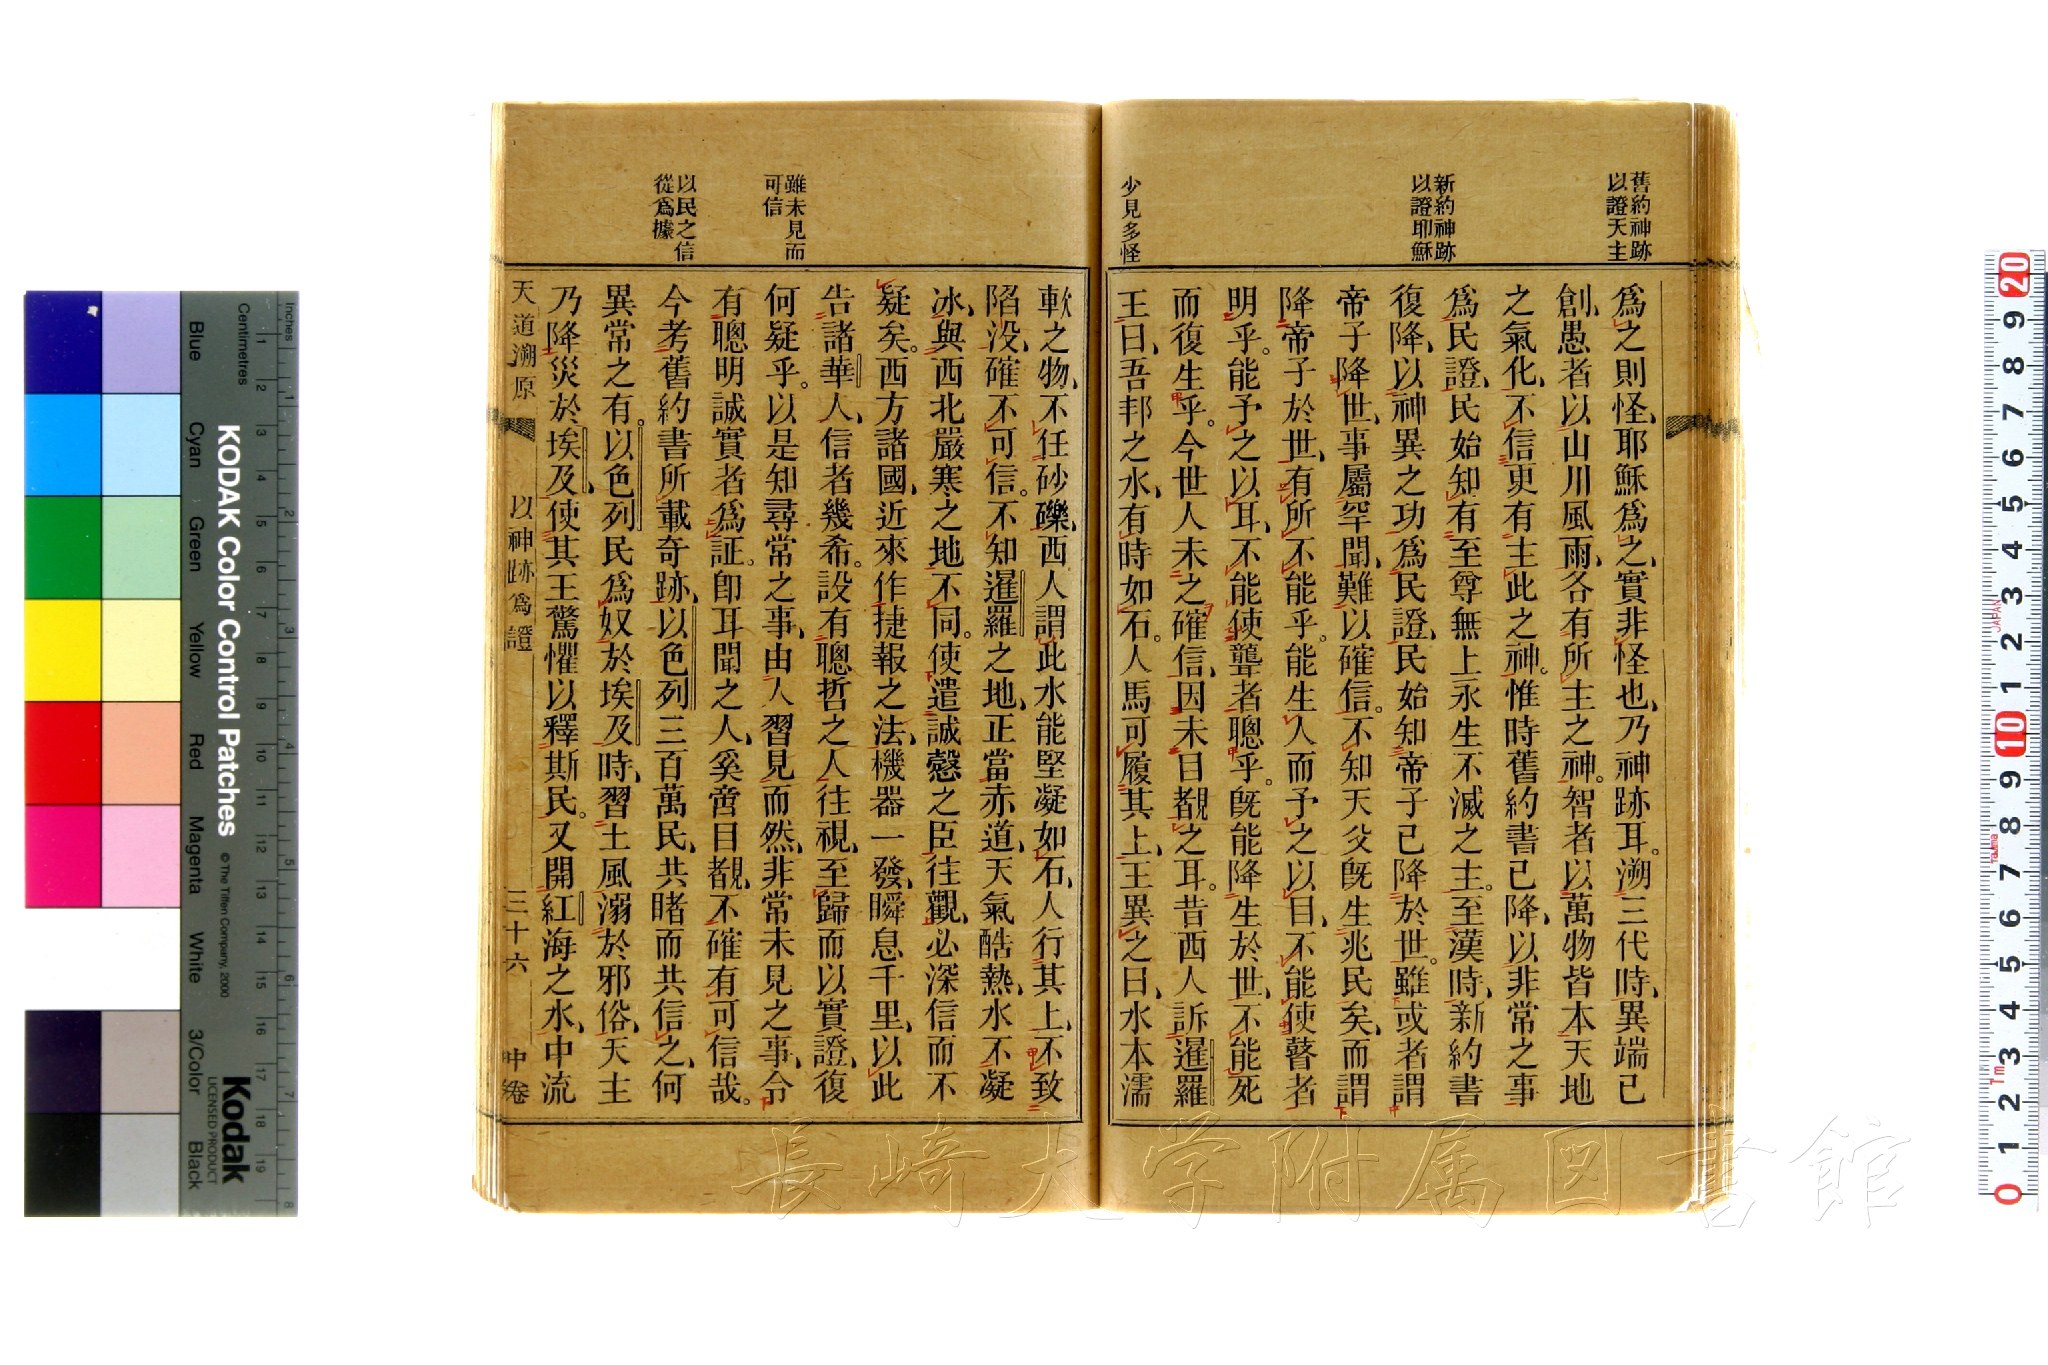 舊約神跡
以證天主
新約神跡
以證耶穌
少見多怪
爲之則怪、耶穌爲之、實非怪也、乃神跡耳。溯三代時、異端已
創、愚者以山川風雨、各有所主之神。智者以萬物皆本天地
之氣化、不信更有主此之神。惟時舊約書已降、以非常之事
爲民證、民始知有至尊無上永生不滅之主。至漢時、新約書
復降、以神異之功爲民證、民始知帝子已降於世。雖或者謂
帝子降世、事屬罕聞、難以確信。不知天父旣生兆民矣、而謂
降帝子於世、有所不能乎。能生人而予之以目、不能使瞽者
明乎。能予之以耳、不能使聾者聰乎。旣能降生於世、不能死
而復生乎。今世人未之確信、因未目覩之耳。昔西人訴暹羅
王曰、吾邦之水、有時如石。人馬可履其上、王異之曰、水本濡
雖未見而
可信
以民之信
從爲據
軟之物、不任砂礫、西人謂此水能堅凝如石、人行其上、不致
陷没、確不可信。不知暹羅之地、正當赤道、天氣酷熱、水不凝
冰、與西北嚴寒之地不同。使遣誠慤之臣往觀、必深信而不
疑矣。西方諸國、近來作捷報之法、機器一發、瞬息千里、以此
告諸華人、信者幾希。設有聰哲之人往視、至歸而以實證、復
何疑乎。以是知尋常之事、由人習見而然、非常未見之事、令
有聰明誠實者爲証。卽耳聞之人、奚啻目覩、不確有可信哉。
今考舊約書所載奇跡、以色列三百萬民、共睹而共信之、何
異常之有。以色列民爲奴於埃及時、習土風溺於邪俗、天主
乃降災於埃及、使其王驚懼以釋斯民。又開紅海之水、中流
天道溯原
以神跡爲證
三十六
中卷
KODAK Color Control Patches
© The Tiffen Company, 2000
Kodak
LICENSED PRODUCT
Inches
Centimetres
Blue
Cyan
Green
Yellow
Red
Magenta
White
3/Color
Black
長崎大学附属図書館
JAPAN